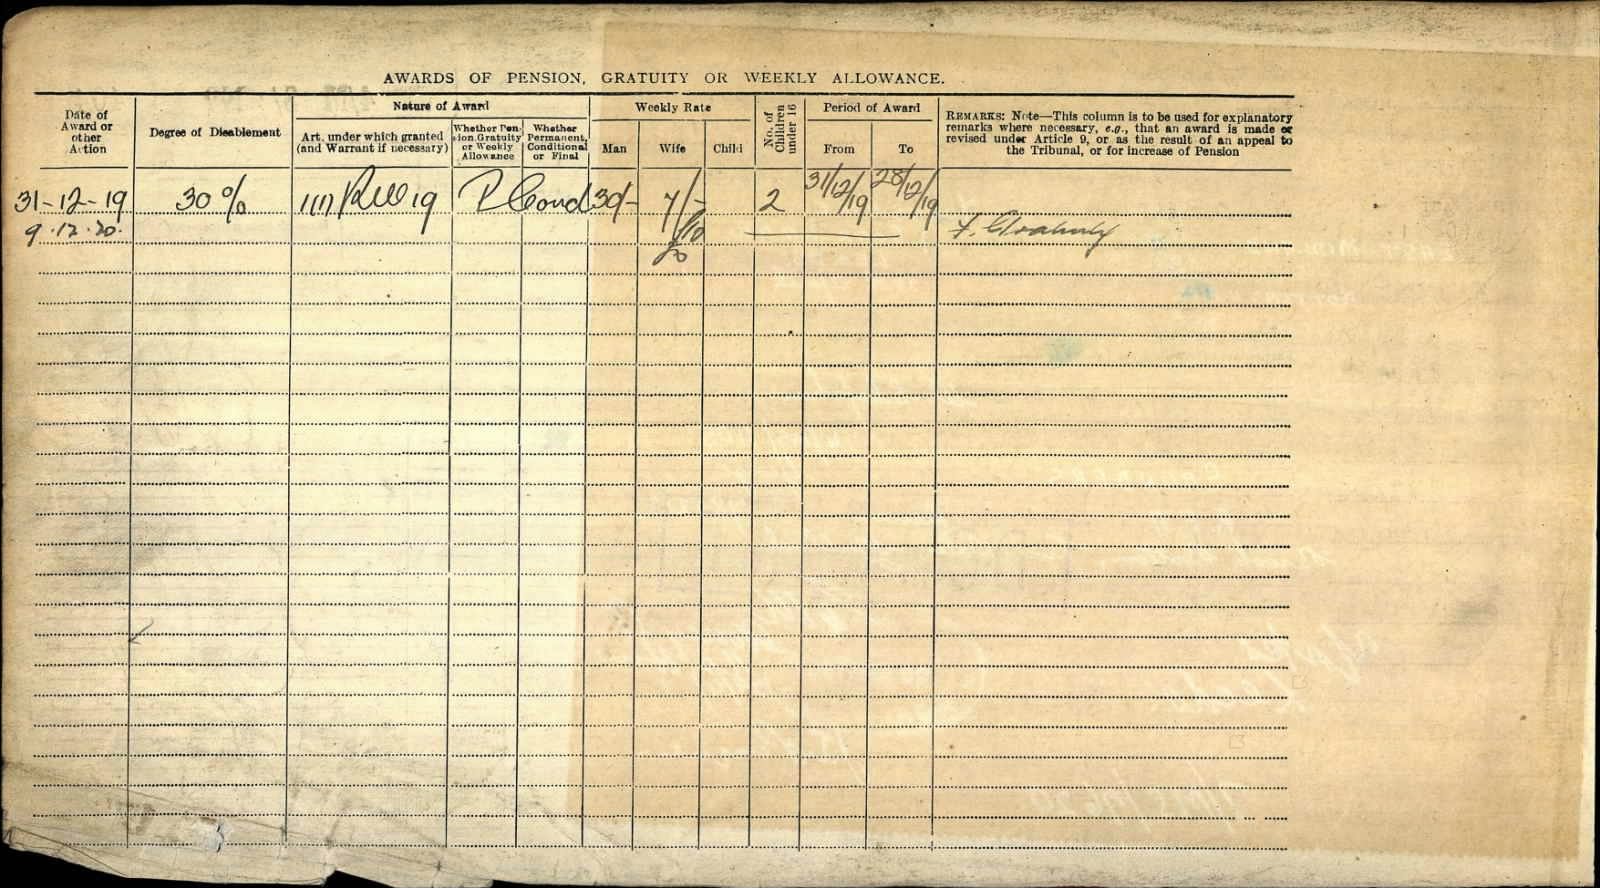 AWARDS OF PENSION, GRATUITY OR WEEKLY ALLOWANCE.
Date of Award or other Action
Degree of Disablement
Nature of Award
Art. under which granted (and Warrant if necessary)
Whether Pension, Gratuity or Weekly Allowance
Whether Permanent, Conditional or Final
Weekly Rate
Man
Wife
Child
No. of Children under 16
Period of Award
From
To
REMARKS: Note—This column is to be used for explanatory
remarks where necessary, e.g., that an award is made or
revised under Article 9, or as the result of an appeal to
the Tribunal, or for increase of Pension
31-12-19 30% 19 P Cond 30/- 7/- 2 31/12/19 28/12/19
9.12.20.